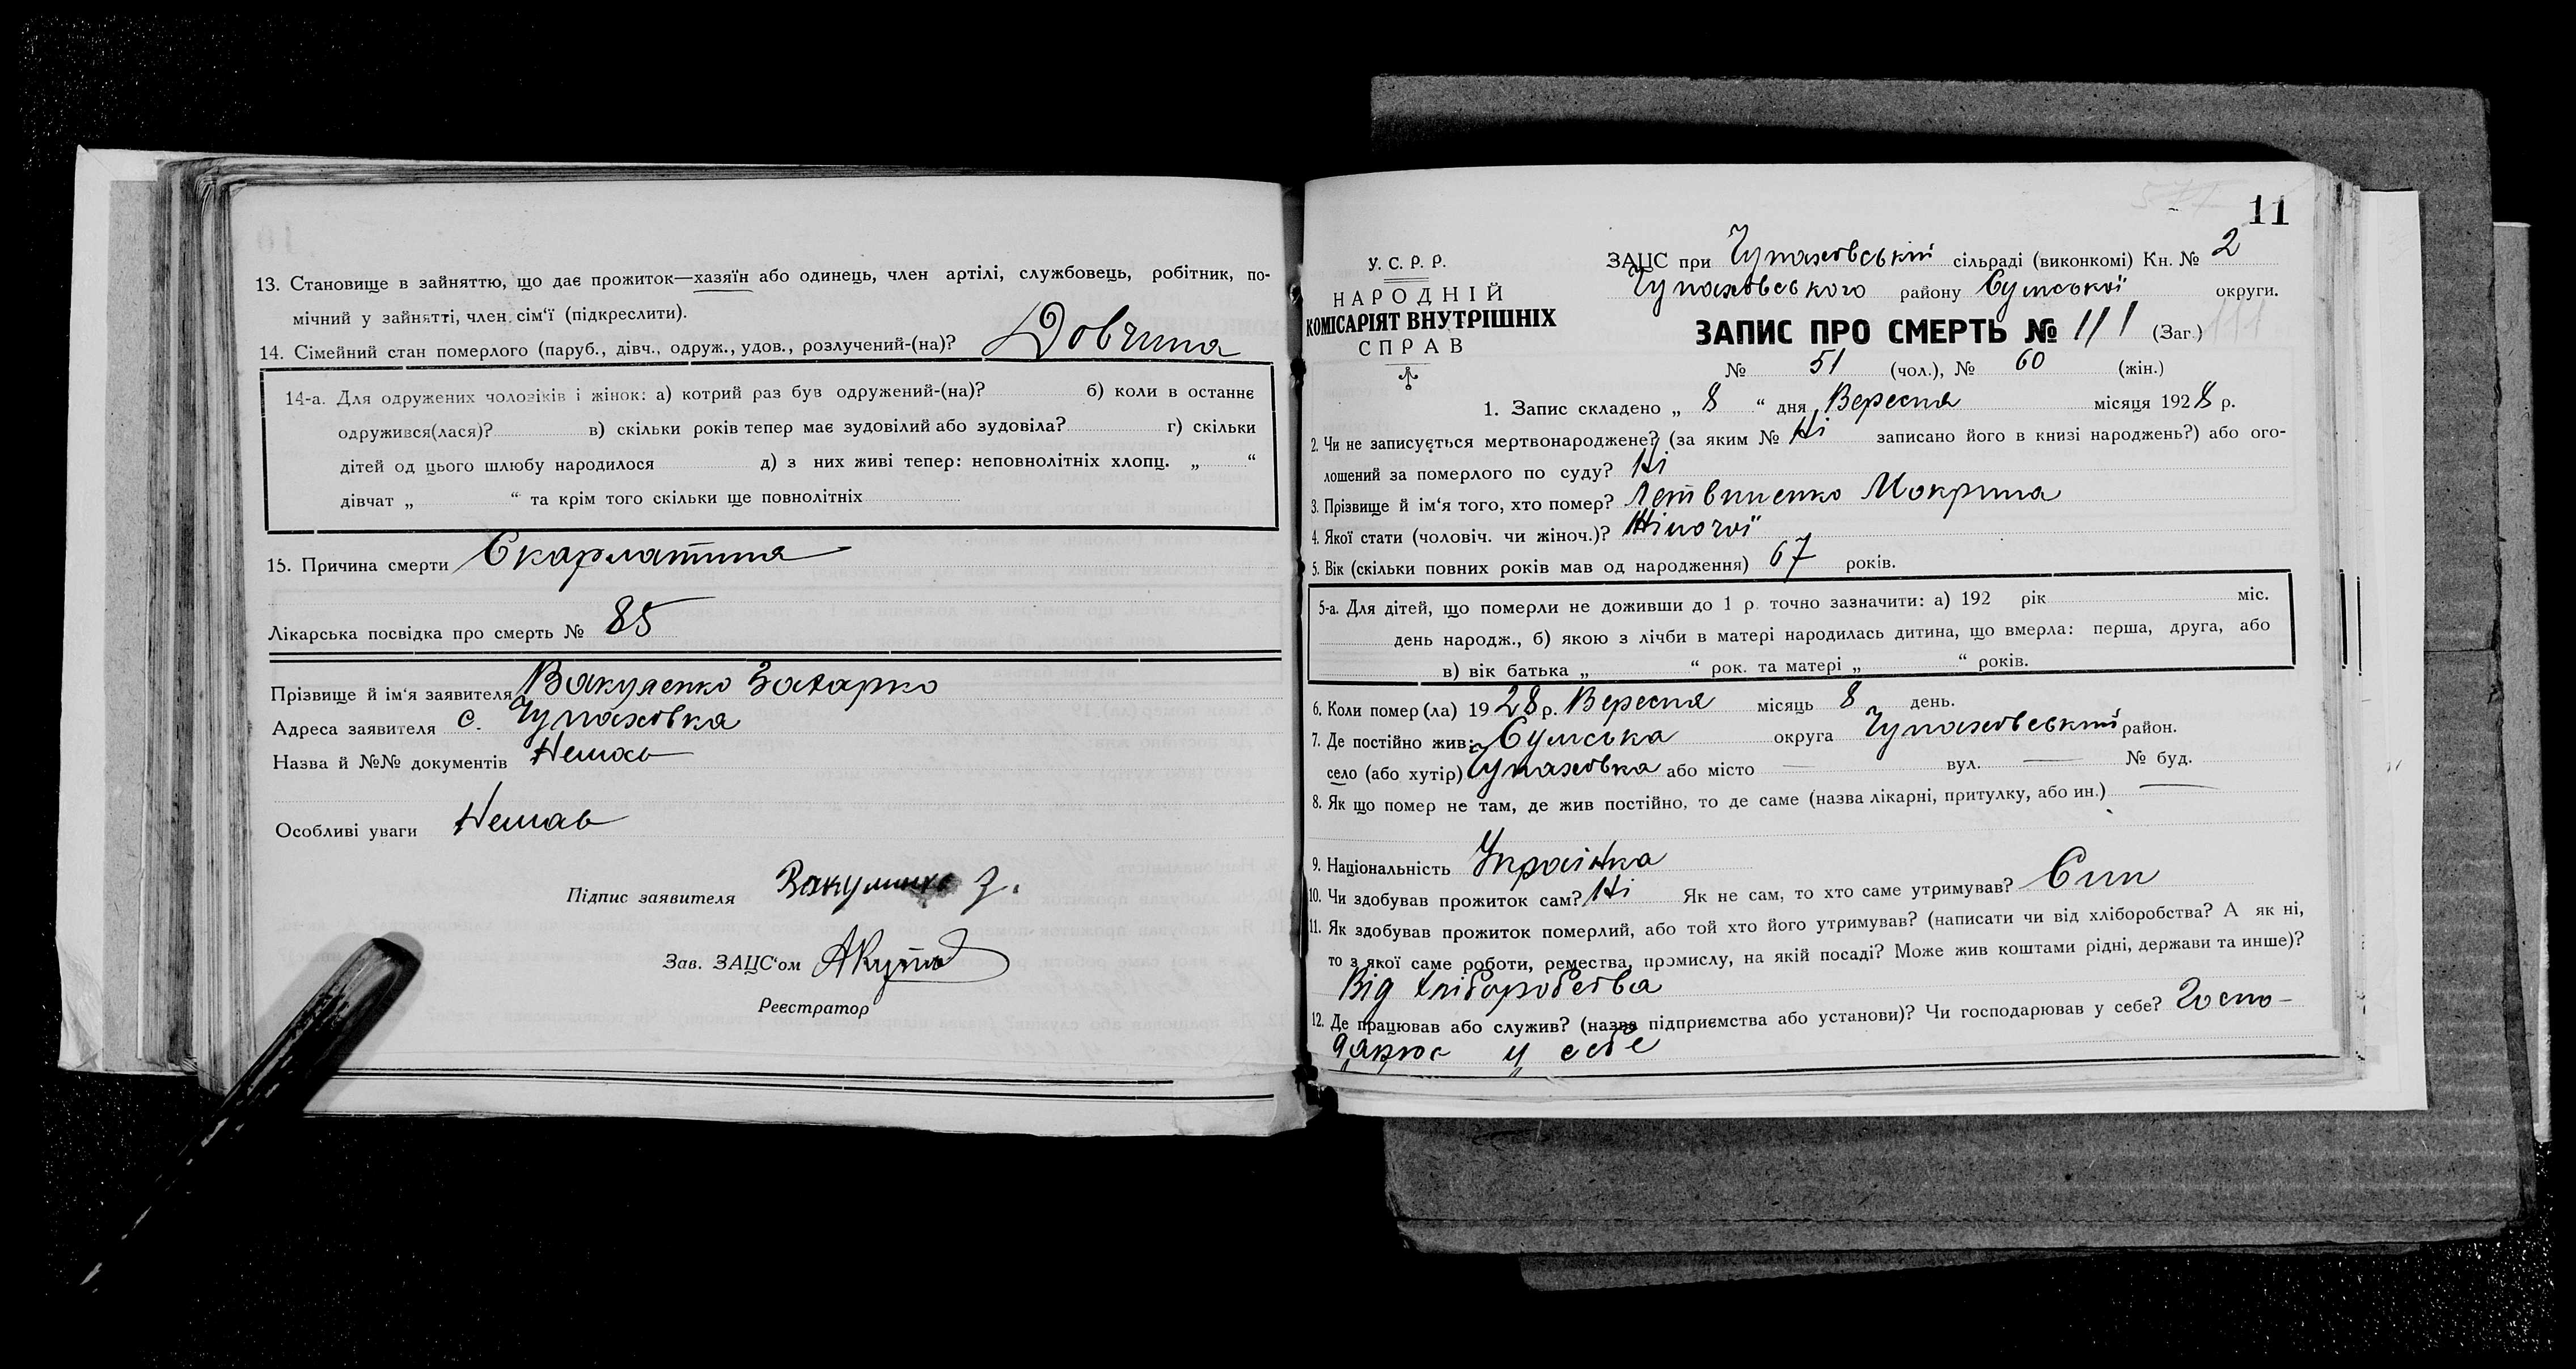 13. Становище в зайняттю, що дає прожиток—хазяїн або одинець, член артілі, службовець, робітник, по-
мічний у зайнятті, член сім'ї (підкреслити).
14. Сімейний стан померлого (паруб., дівч., одруж., удов., розлучений-(на)? Довчина
14-а. Для одружених чоловіків і жінок: а) котрий раз був одружений-(на)? б) коли в останнє
одружився(лася)? в) скільки років тепер має зудовілий або зудовіла? г) скільки
дітей од цього шлюбу народилося д) з них живі тепер: неповнолітніх хлопц. „ “
дівчат „ “ та крім того скільки ще повнолітніх
15. Причина смерти Скарлатина
Лікарська посвідка про смерть № 85
Прізвище й ім'я заявителя Вакуленко Захарко
Адреса заявителя с. Чупаховка
Назва й №№ документів Немає
Особливі уваги Немає
Підпис заявителя Вакуленко З.
Зав. ЗАЦС'ом
Реєстратор
11
У. С. Р. Р.
НАРОДНІЙ
КОМІСАРІЯТ ВНУТРІШНІХ
СПРАВ
ЗАЦС при Чупаховській сільраді (виконкомі) Кн. № 2
Чупаховського району Сумської округи.
ЗАПИС ПРО СМЕРТЬ № 111 (Заг.) 111
№ 51 (чол.), № 60 (жін.)
1. Запис складено „ 8 “ дня Вересня місяця 1928 р.
2. Чи не записується мертвонароджене? (за яким № Ні записано його в книзі народжень?) або ого-
лошений за померлого по суду? Ні
3. Прізвище й ім'я того, хто помер? Летвиненко Мокрина
4. Якої стати (чоловіч. чи жіноч.)? Жіночої
5. Вік (скільки повних років мав од народження) 67 років.
5-а. Для дітей, що померли не доживши до 1 р. точно зазначити: а) 192 рік міс.
день народж., б) якою з лічби в матері народилась дитина, що вмерла: перша, друга, або
в) вік батька „ “ рок. та матері „ “ років.
6. Коли помер (ла) 1928 р. Вересня місяць 8 день.
7. Де постійно жив: Сумська округа Чупаховський район.
село (або хутір) Чупаховка або місто — вул. — № буд.
8. Як що помер не там, де жив постійно, то де саме (назва лікарні, притулку, або ин.) —
9. Національність Українка
10. Чи здобував прожиток сам? Ні Як не сам, то хто саме утримував? Син
11. Як здобував прожиток померлий, або той хто його утримував? (написати чи від хліборобства? А як ні,
то з якої саме роботи, ремества, промислу, на якій посаді? Може жив коштами рідні, держави та инше)?
Від хліборобства
12. Де працював або служив? (назва підприємства або установи)? Чи господарював у себе? Госпо-
дарює у себе